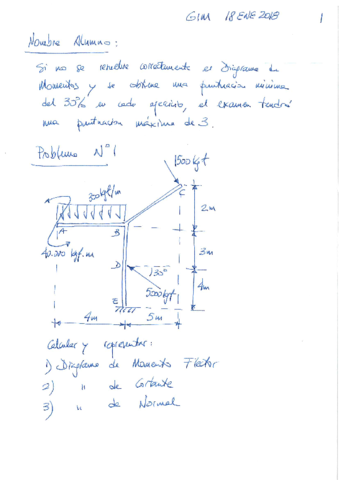 GIM 18 ENE 2018 1
Nombre Alumno:
Si no se resuelve correctamente el Diagrama de
Momentos y se obtiene una puntuación mínima
del 35% en cada ejercicio, el examen tendrá
una puntuación máxima de 3.
Problema Nº1
1500kgf
C
300kgf/m
2m
A
B
40.000 kgf.m
3m
D
30º
5000kgf
4m
E
4m
5m
Calcular y representar:
1) Diagrama de Momento Flector
2) " de Cortante
3) " de Normal